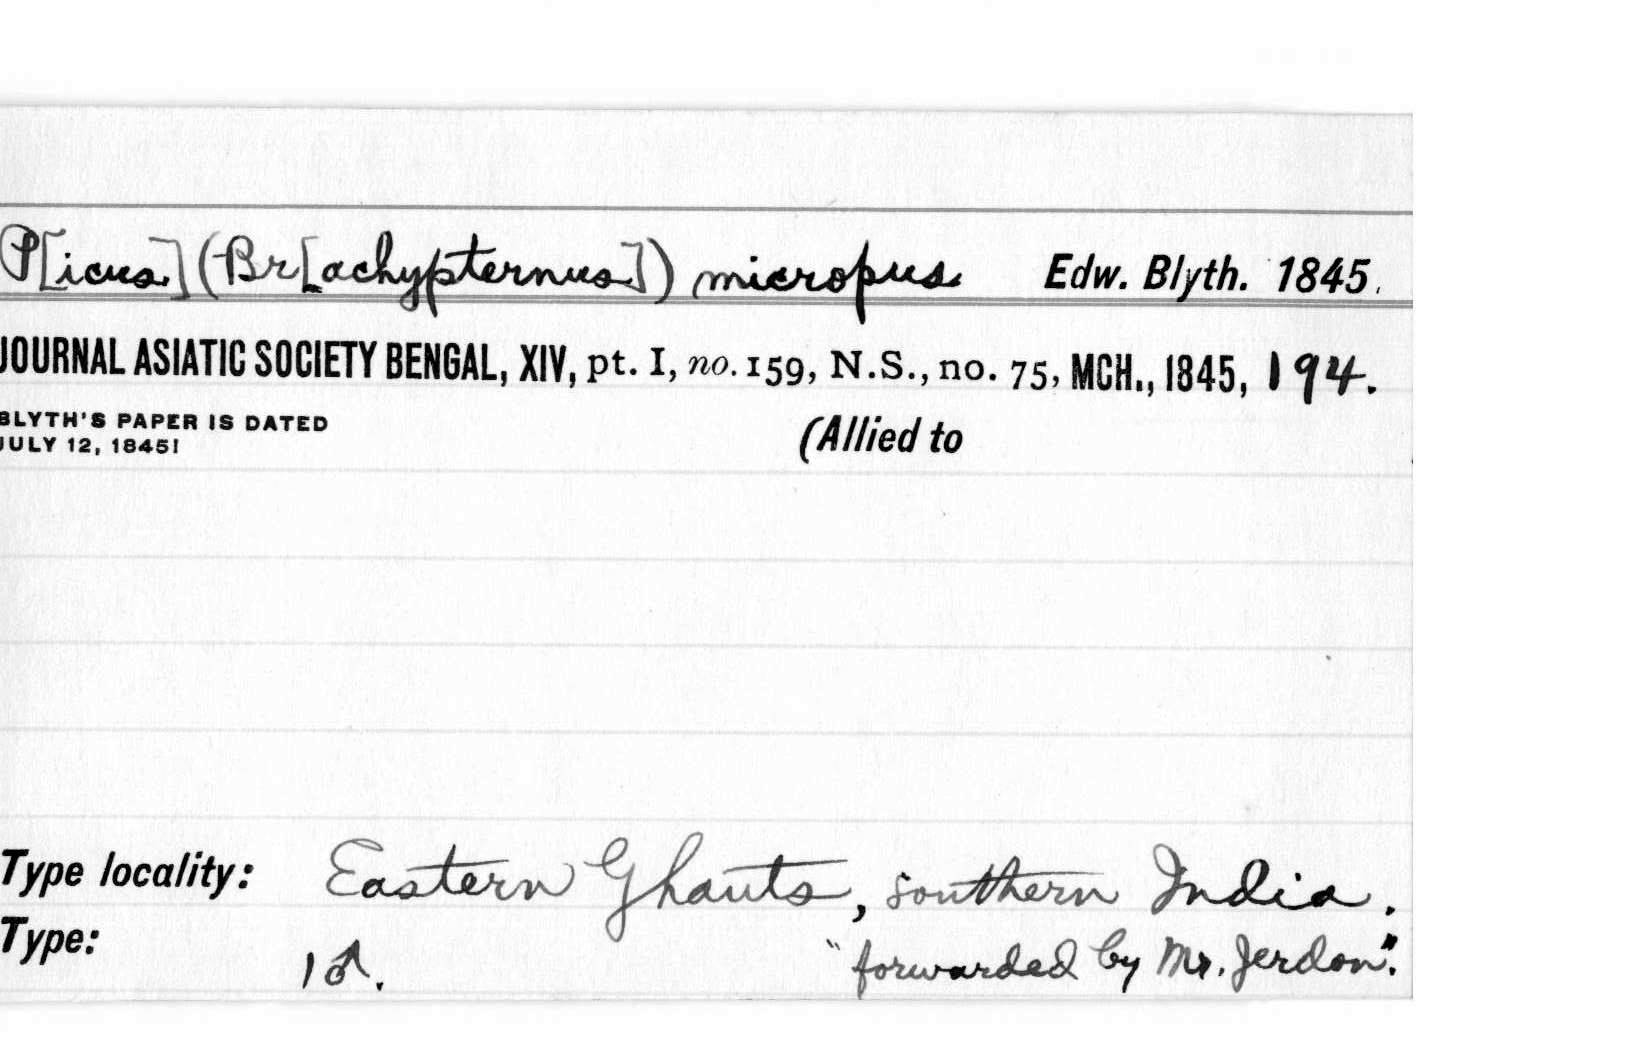 P[icus] (Br[achypternus]) micropus Edw. Blyth. 1845.
JOURNAL ASIATIC SOCIETY BENGAL, XIV, pt. I, no. 159, N.S., no. 75, MCH., 1845, 194.
BLYTH'S PAPER IS DATED
JULY 12, 1845!
(Allied to
Type locality: Eastern Ghauts, southern India.
Type: 1♂. "forwarded by Mr. Jerdon".